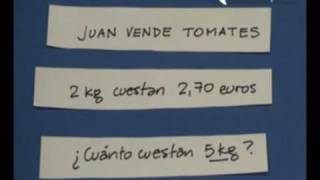 JUAN VENDE TOMATES
2 kg cuestan 2,70 euros
¿Cuánto cuestan 5 kg?